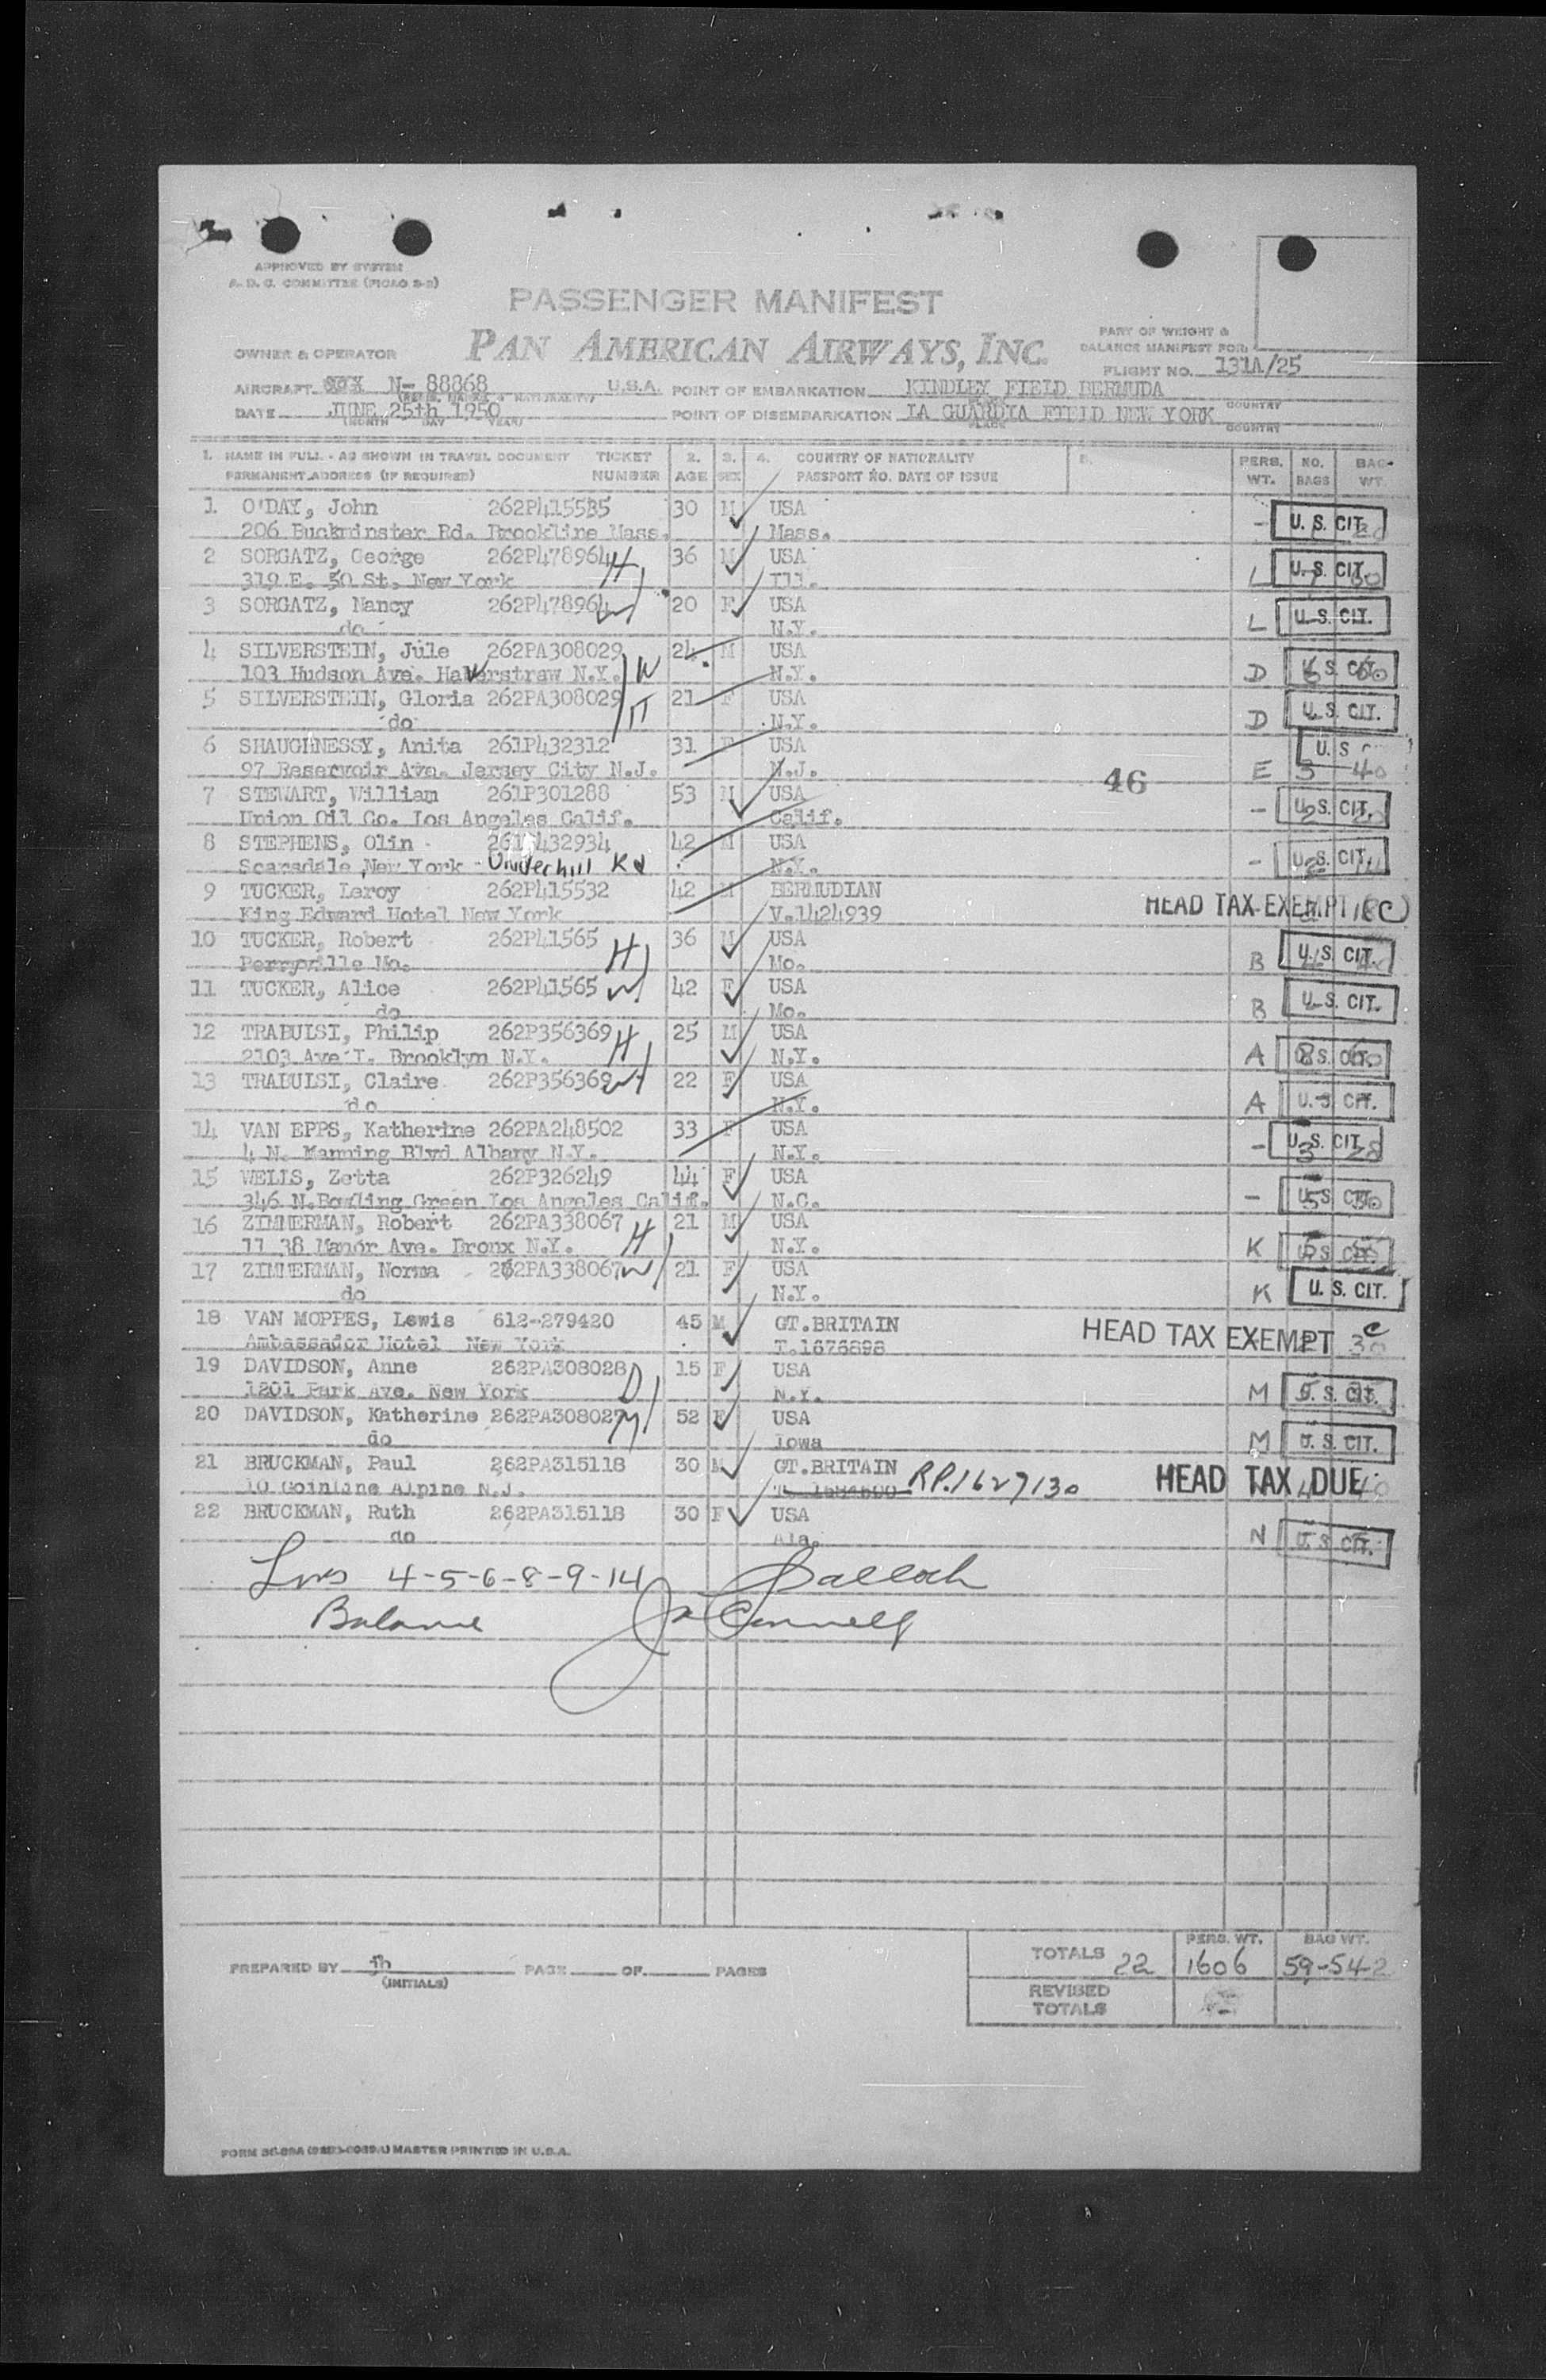 APPROVED BY SYSTEM
A. D. C. COMMITTEE (PICAO 2-2)
PASSENGER MANIFEST
PAN AMERICAN AIRWAYS, INC.
OWNER & OPERATOR
PART OF WEIGHT &
BALANCE MANIFEST FOR:
FLIGHT NO. 131A/25
AIRCRAFT N-88868 U.S.A. POINT OF EMBARKATION KINDLEY FIELD BERMUDA
DATE JUNE 25th 1950 POINT OF DISEMBARKATION LA GUARDIA FIELD NEW YORK COUNTRY
(MONTH DAY YEAR) PLACE COUNTRY
1. NAME IN FULL - AS SHOWN IN TRAVEL DOCUMENT TICKET 2. 3. 4. COUNTRY OF NATIONALITY 5. PERS. NO. BAG-
PERMANENT ADDRESS (IF REQUIRED) NUMBER AGE SEX PASSPORT NO. DATE OF ISSUE WT. BAGS WT.
1 O'DAY, John 262P415535 30 M USA - U. S. CIT.
206 Buckminster Rd. Brookline Mass. Mass.
2 SORGATZ, George 262P478964 H 36 M USA
319 E. 50 St. New York Ill. L U. S. CIT.
3 SORGATZ, Nancy 262P478964 W 20 F USA
do N.Y. L U. S. CIT.
4 SILVERSTEIN, Jule 262PA308029 24 M USA
103 Hudson Ave. Haverstraw N.Y. W N.Y. D U. S. CIT.
5 SILVERSTEIN, Gloria 262PA308029 H 21 F USA
do N.Y. D U. S. CIT.
6 SHAUGHNESSY, Anita 261P432312 31 F USA U. S
97 Reservoir Ave. Jersey City N.J. N.J. 46 E 3 40
7 STEWART, William 261P301288 53 M USA
Union Oil Co. Los Angeles Calif. Calif. - U. S. CIT.
8 STEPHENS, Olin 261P432934 42 M USA
Scarsdale, New York - Underhill Rd N.Y. - U. S. CIT.
9 TUCKER, Leroy 262P415532 42 M BERMUDIAN
King Edward Hotel New York V.1424939 HEAD TAX EXEMPT
10 TUCKER, Robert 262P41565 H 36 M USA
Perryville Mo. Mo. B U. S. CIT.
11 TUCKER, Alice 262P41565 W 42 F USA
do Mo. B U. S. CIT.
12 TRABULSI, Philip 262P356369 H 25 M USA
2103 Ave I. Brooklyn N.Y. N.Y. A U. S. CIT.
13 TRABULSI, Claire 262P356369 W 22 F USA
do N.Y. A U. S. CIT.
14 VAN EPPS, Katherine 262PA248502 33 F USA
4 N. Manning Blvd Albany N.Y. N.Y. - U. S. CIT.
15 WELLS, Zetta 262P326249 44 F USA
346 N.Bowling Green Los Angeles Calif. N.C. - U. S. CIT.
16 ZIMMERMAN, Robert 262PA338067 21 M USA
11 38 Manor Ave. Bronx N.Y. H N.Y. K U. S. CIT.
17 ZIMMERMAN, Norma 262PA338067 W 21 F USA
do N.Y. K U. S. CIT.
18 VAN MOPPES, Lewis 612-279420 45 M GT.BRITAIN
Ambassador Hotel New York T.1676898 HEAD TAX EXEMPT
19 DAVIDSON, Anne 262PA308028 D 15 F USA
1201 Park Ave. New York N.Y. M U. S. CIT.
20 DAVIDSON, Katherine 262PA308027 M 52 F USA
do Iowa M U. S. CIT.
21 BRUCKMAN, Paul 262PA315118 30 M GT.BRITAIN
10 Alpine N.J. R.P.1627130 HEAD TAX DUE
22 BRUCKMAN, Ruth 262PA315118 30 F USA
do Ala. N U. S. CIT.
Lines 4-5-6-8-9-14
Balance
PREPARED BY jh PAGE OF PAGES
(INITIALS)
TOTALS 22 PERS. WT. 1606 BAG WT. 59-542
REVISED
TOTALS
MASTER PRINTED IN U.S.A.